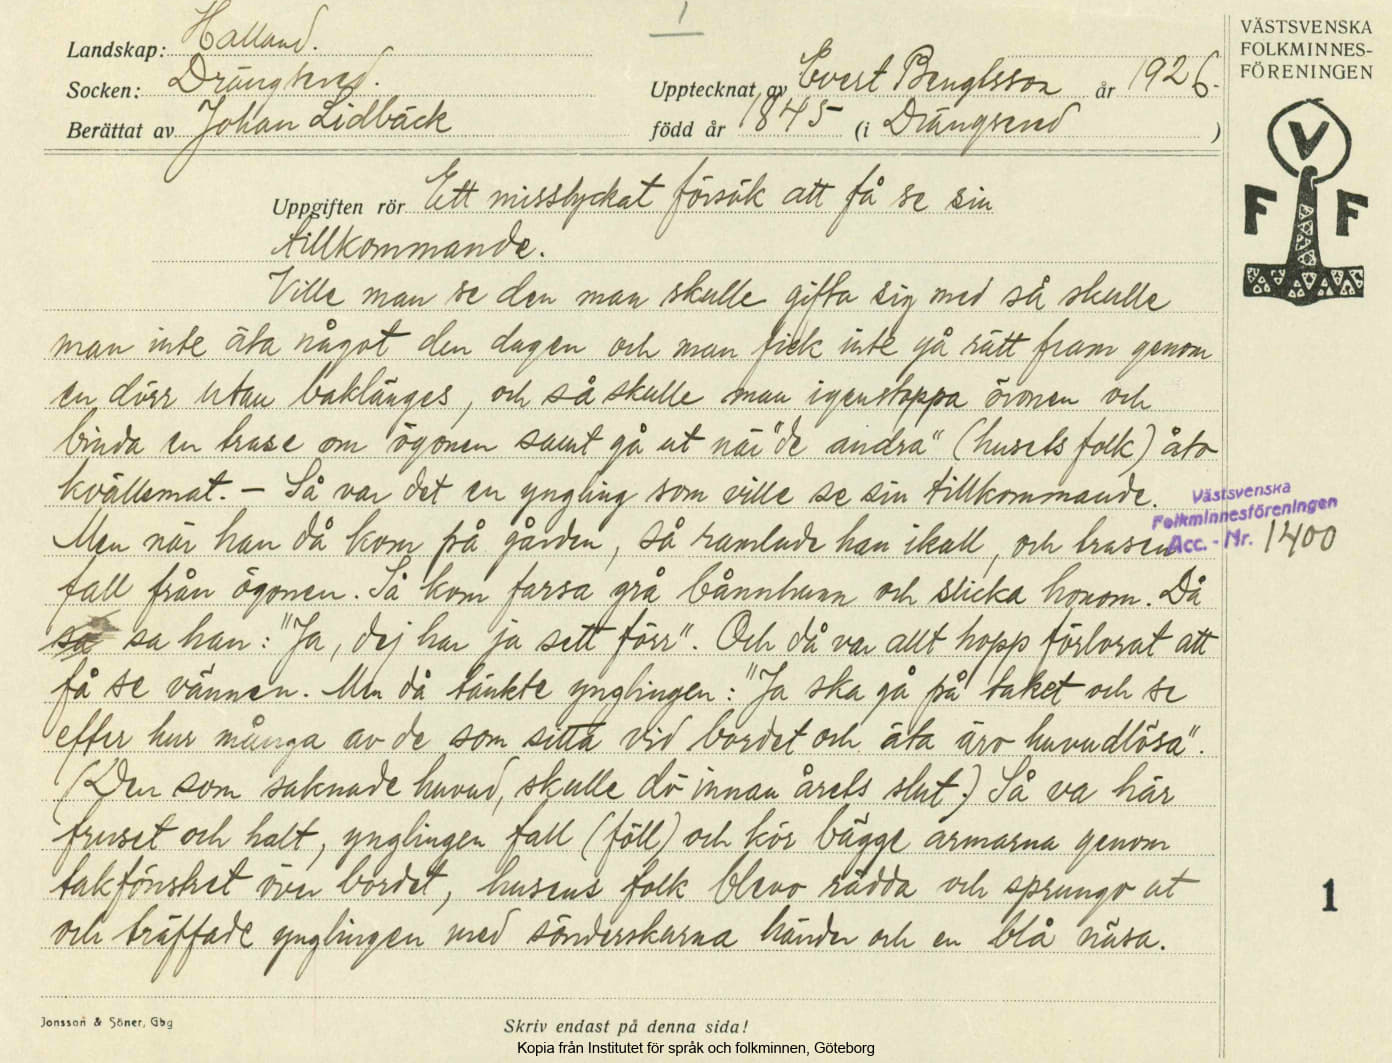 1
Landskap: Halland.
Socken: Drängsered.
Berättat av Johan Lidbäck
Upptecknat av Evert Bengtsson år 1926.
född år 1845 (i Drängsered )
VÄSTSVENSKA
FOLKMINNES-
FÖRENINGEN
V
F F
Uppgiften rör Ett misslyckat försök att få se sin
tillkommande.
Ville man se den man skulle gifta sig med så skulle
man inte äta något den dagen och man fick inte gå rätt fram genom
en dörr utan baklänges, och så skulle man igenstoppa öronen och
binda en trase om ögonen samt gå ut när "de andra" (husets folk) åto
kvällsmat. – Så var det en yngling som ville se sin tillkommande.
Men när han då kom på gården, så ramlade han ikull, och trasen
fall från ögonen. Så kom farsa grå bånnhunn och slicka honom. Då
sa sa han: "Ja, dej har ja sett förr". Och då var allt hopp förlorat att
få se vännen. Men då tänkte ynglingen: "Ja ska gå på taket och se
efter hur många av de som sitta vid bordet och äta äro huvudlösa".
(Den som saknade huvud, skulle dö innan årets slut.) Så va här
fruset och halt, ynglingen fall (föll) och kör bägge armarna genom
takfönstret över bordet, husens folk blevo rädda och sprungo ut
och träffade ynglingen med sönderskurna händer och en blå näsa.
Västsvenska
Folkminnesföreningen
Acc. - Nr. 1400
1
Jonsson & Söner, Gbg
Skriv endast på denna sida!
Kopia från Institutet för språk och folkminnen, Göteborg